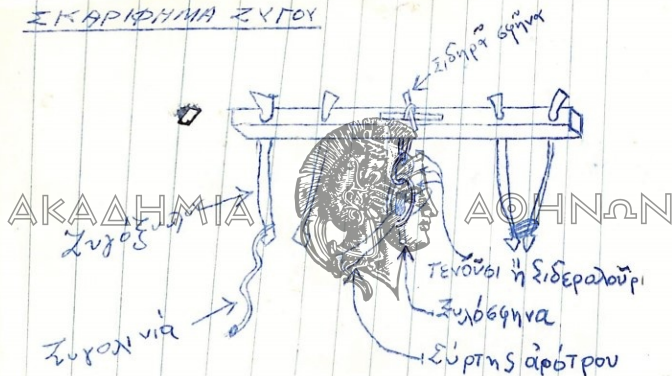 ΣΚΑΡΙΦΗΜΑ ΖΥΓΟΥ
Σιδηρᾶ σφῆνα
ΑΚΑΔΗΜΙΑ ΑΘΗΝΩΝ
Ζυγόξυλ
τενοῦσι ἢ Σιδεραλοῦρι
Ξυλόσφηνα
Ζυγολινιά
Σύρτης ἀρότρου